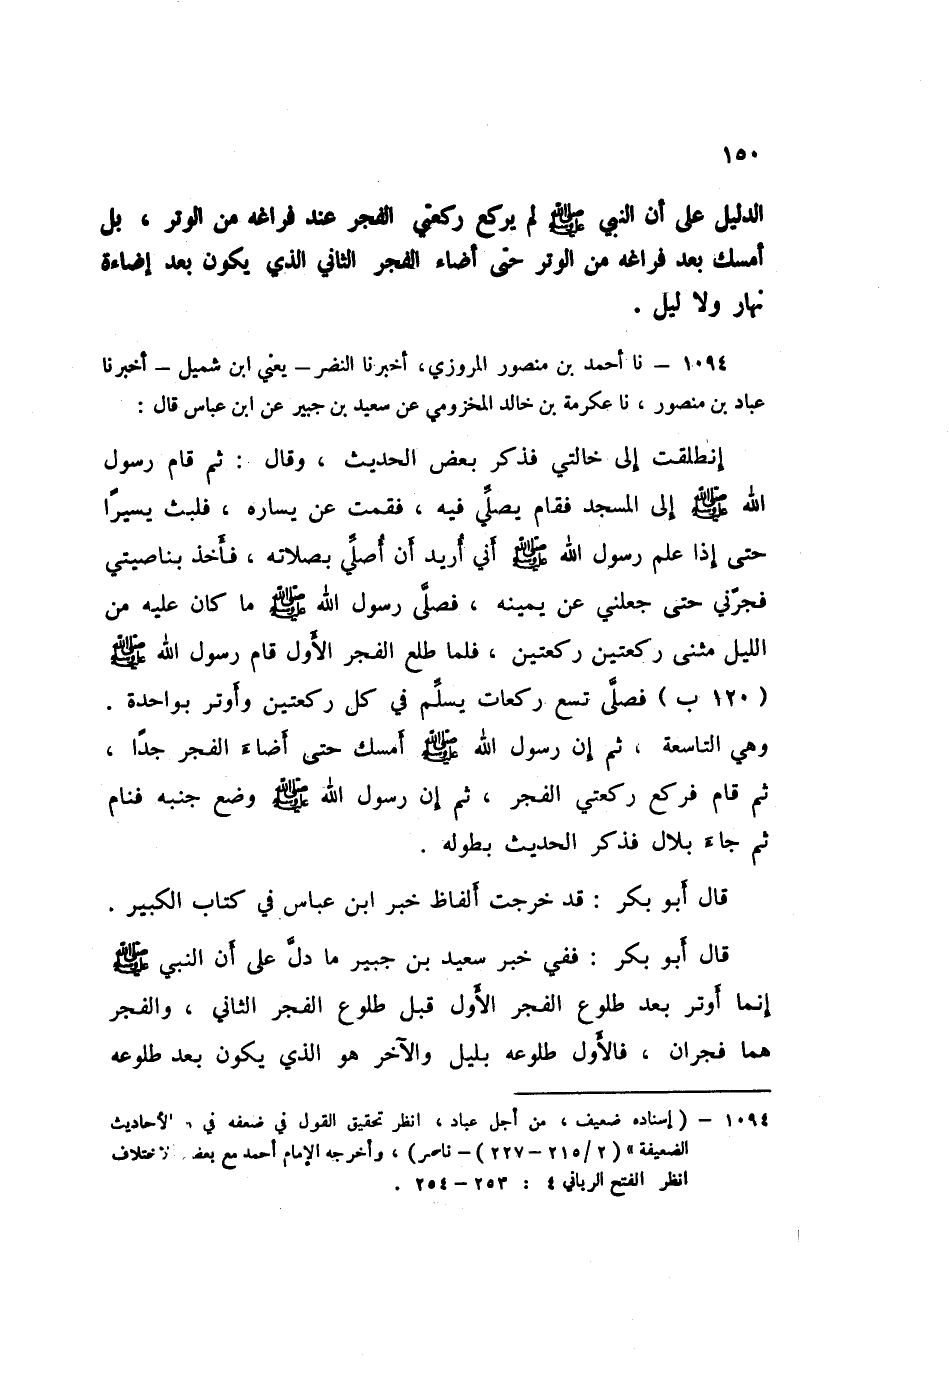 ١٥٠
الدليل على أن النبي ﷺ لم يركع ركعتي الفجر عند فراغه من الوتر ، بل
أمسك بعد فراغه من الوتر حتى أضاء الفجر الثاني الذي يكون بعد إضاءة
نهار ولا ليل .
١٠٩٤ – نا أحمد بن منصور المروزي، أخبرنا النضر – يعني ابن شميل – أخبرنا
عباد بن منصور ، نا عكرمة بن خالد المخزومي عن سعيد بن جبير عن ابن عباس قال :
إنطلقت إلى خالتي فذكر بعض الحديث ، وقال : ثم قام رسول
الله ﷺ إلى المسجد فقام يصلِّي فيه ، فقمت عن يساره ، فلبث يسيرًا
حتى إذا علم رسول الله ﷺ أَني أُريد أن أُصلِّي بصلاته ، فأَخذ بناصيتي
فجرّني حتى جعلني عن يمينه ، فصلَّى رسول الله ﷺ ما كان عليه من
الليل مثنى ركعتين ركعتين ، فلما طلع الفجر الأَول قام رسول الله ﷺ
( ١٢٠ ب ) فصلَّى تسع ركعات يسلِّم في كل ركعتين وأَوتر بواحدة .
وهي التاسعة ، ثم إن رسول الله ﷺ أَمسك حتى أَضاءَ الفجر جدًا ،
ثم قام فركع ركعتي الفجر ، ثم إن رسول الله ﷺ وضع جنبه فنام
ثم جاءَ بلال فذكر الحديث بطوله .
قال أَبو بكر : قد خرجت أَلفاظ خبر ابن عباس في كتاب الكبير .
قال أَبو بكر : ففي خبر سعيد بن جبير ما دلَّ على أَن النبي ﷺ
إنما أَوتر بعد طلوع الفجر الأَول قبل طلوع الفجر الثاني ، والفجر
هما فجران ، فالأَول طلوعه بليل والآخر هو الذي يكون بعد طلوعه
١٠٩٤ – ( إسناده ضعيف ، من أجل عباد ، انظر تحقيق القول في ضعفه في الأحاديث
الضعيفة » ( ٢ / ٢١٥ – ٢٢٧ ) – ناصر ) ، وأخرجه الإمام أحمد مع بعض الاختلاف
انظر الفتح الرباني ٤ : ٢٥٣ – ٢٥٤ .